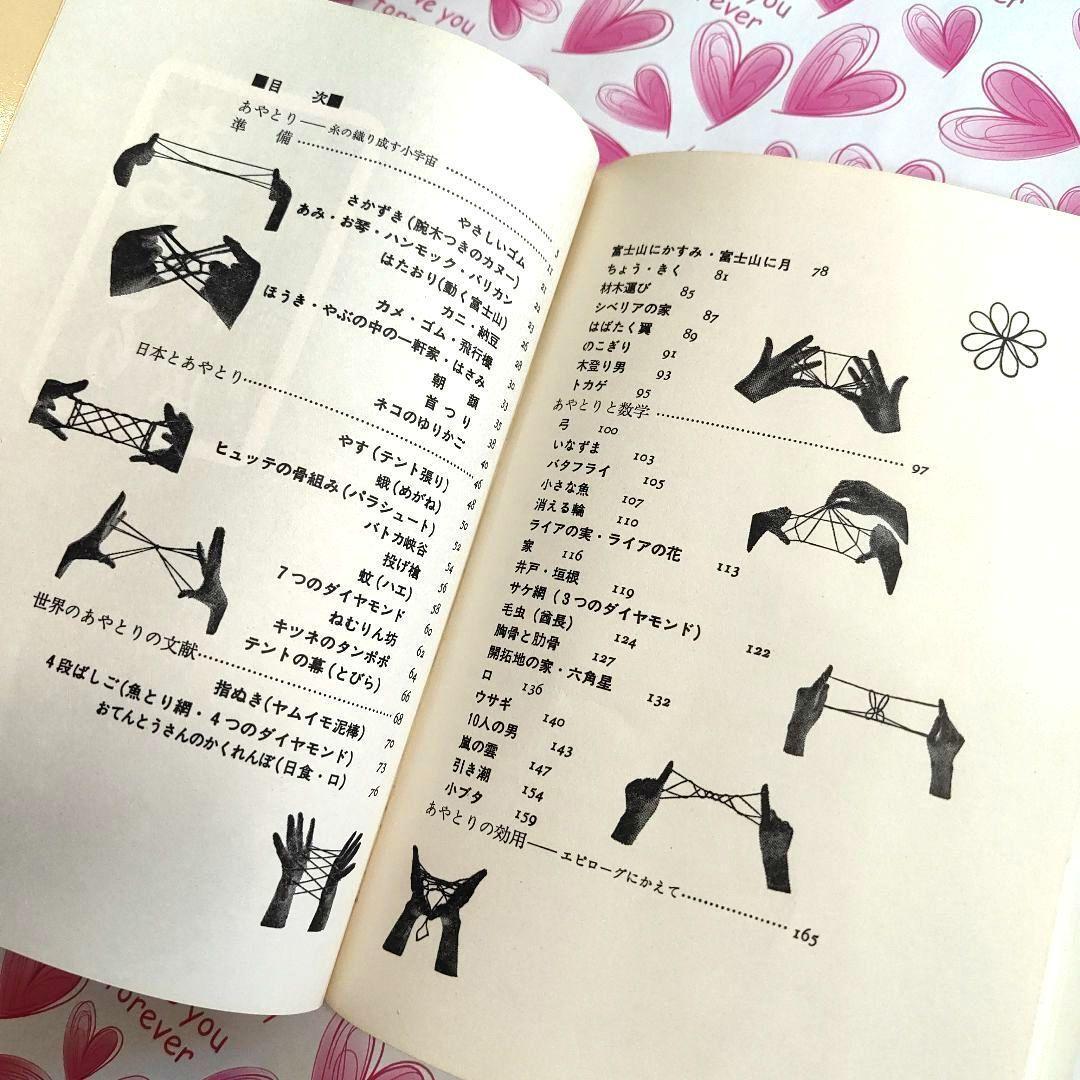 ■目 次■
あやとり——糸の織り成す小宇宙 ………… 5
準 備 ………… 11
やさしいゴム 21
さかずき(腕木つきのカヌー) 22
あみ・お琴・ハンモック・バリカン 23
はたおり(動く富士山) 26
カニ・納豆 28
カメ・ゴム・飛行機 30
ほうき・やぶの中の一軒家・はさみ 33
朝 顔 35
首つり 38
日本とあやとり………… 40
ネコのゆりかご 46
やす(テント張り) 48
蛾(めがね) 50
ヒュッテの骨組み(パラシュート) 52
バトカ峡谷 54
投げ槍 56
蚊(ハエ) 58
7つのダイヤモンド 60
ねむりん坊 62
キツネのタンポポ 64
テントの幕(とびら) 66
世界のあやとりの文献………… 68
指ぬき(ヤムイモ泥棒) 70
4段ばしご(魚とり網・4つのダイヤモンド) 73
おてんとうさんのかくれんぼ(日食・ロ) 76
富士山にかすみ・富士山に月 78
ちょう・きく 81
材木運び 85
シベリアの家 87
はばたく翼 89
のこぎり 91
木登り男 93
トカゲ 95
あやとりと数学………… 97
弓 100
いなずま 103
バタフライ 105
小さな魚 107
消える輪 110
ライアの実・ライアの花 113
家 116
井戸・垣根 119
サケ網(3つのダイヤモンド) 122
毛虫(酋長) 124
胸骨と肋骨 127
開拓地の家・六角星 132
口 136
ウサギ 140
10人の男 143
嵐の雲 147
引き潮 154
小ブタ 159
あやとりの効用——エピローグにかえて………… 165
love you
forever
forever
you
forever